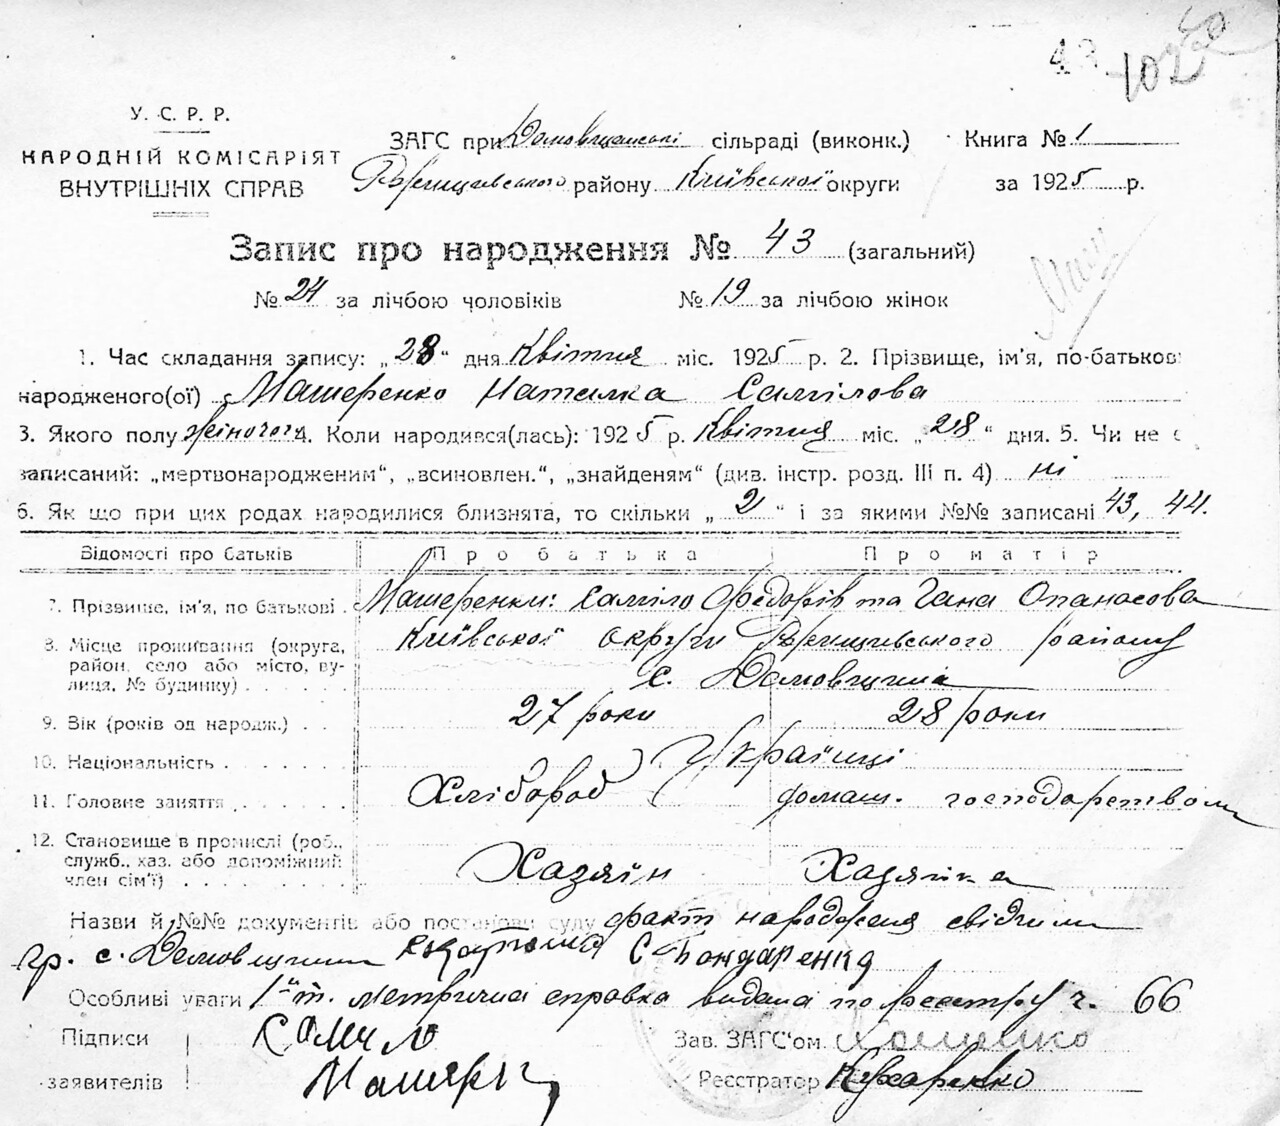 43 102
У. С. Р. Р.
НАРОДНІЙ КОМІСАРІЯТ
ВНУТРІШНІХ СПРАВ
ЗАГС при сільраді (виконк.) Книга № 1
Ржищівського району Київської округи за 1925 р.
Запис про народження № 43 (загальний)
№ 24 за лічбою чоловіків № 19 за лічбою жінок
1. Час складання запису: „28“ дня Квітня міс. 1925 р. 2. Прізвище, ім'я, по-батькові
народженого(ої) Машеренко Наталка Саміілова
3. Якого полу жіночого 4. Коли народився(лась): 1925 р. Квітня міс. „28“ дня. 5. Чи не є
записаний: „мертвонародженим“, „всиновлен.“, „знайденям“ (див. інстр. розд. III п. 4) ні
6. Як що при цих родах народилися близнята, то скільки „2“ і за якими №№ записані 43, 44.
Відомості про батьків Про батька Про матір
7. Прізвище, ім'я, по батькові . Машеренки: Саміло Федорів та Гана Опанасова
8. Місце проживання (округа, район, село або місто, вулиця, № будинку) Київської округи Ржищівського району
с. Демовщина
9. Вік (років од народж.) . . 27 роки 28 роки
10. Національність Українці
11. Головне заняття Хлібороб домаш. господарством
12. Становище в промислі (роб., служб., хаз. або допоміжний член сім'ї) Хазяїн Хазяйка
Назви й №№ документів або постанови суду факт народження свідчили
гр. с. Демовщини С Бондаренко
Особливі уваги метрична справка видана по реєстру ч. 66
Підписи Саміло Зав. ЗАГС'ом
заявителів Машерен Реєстратор